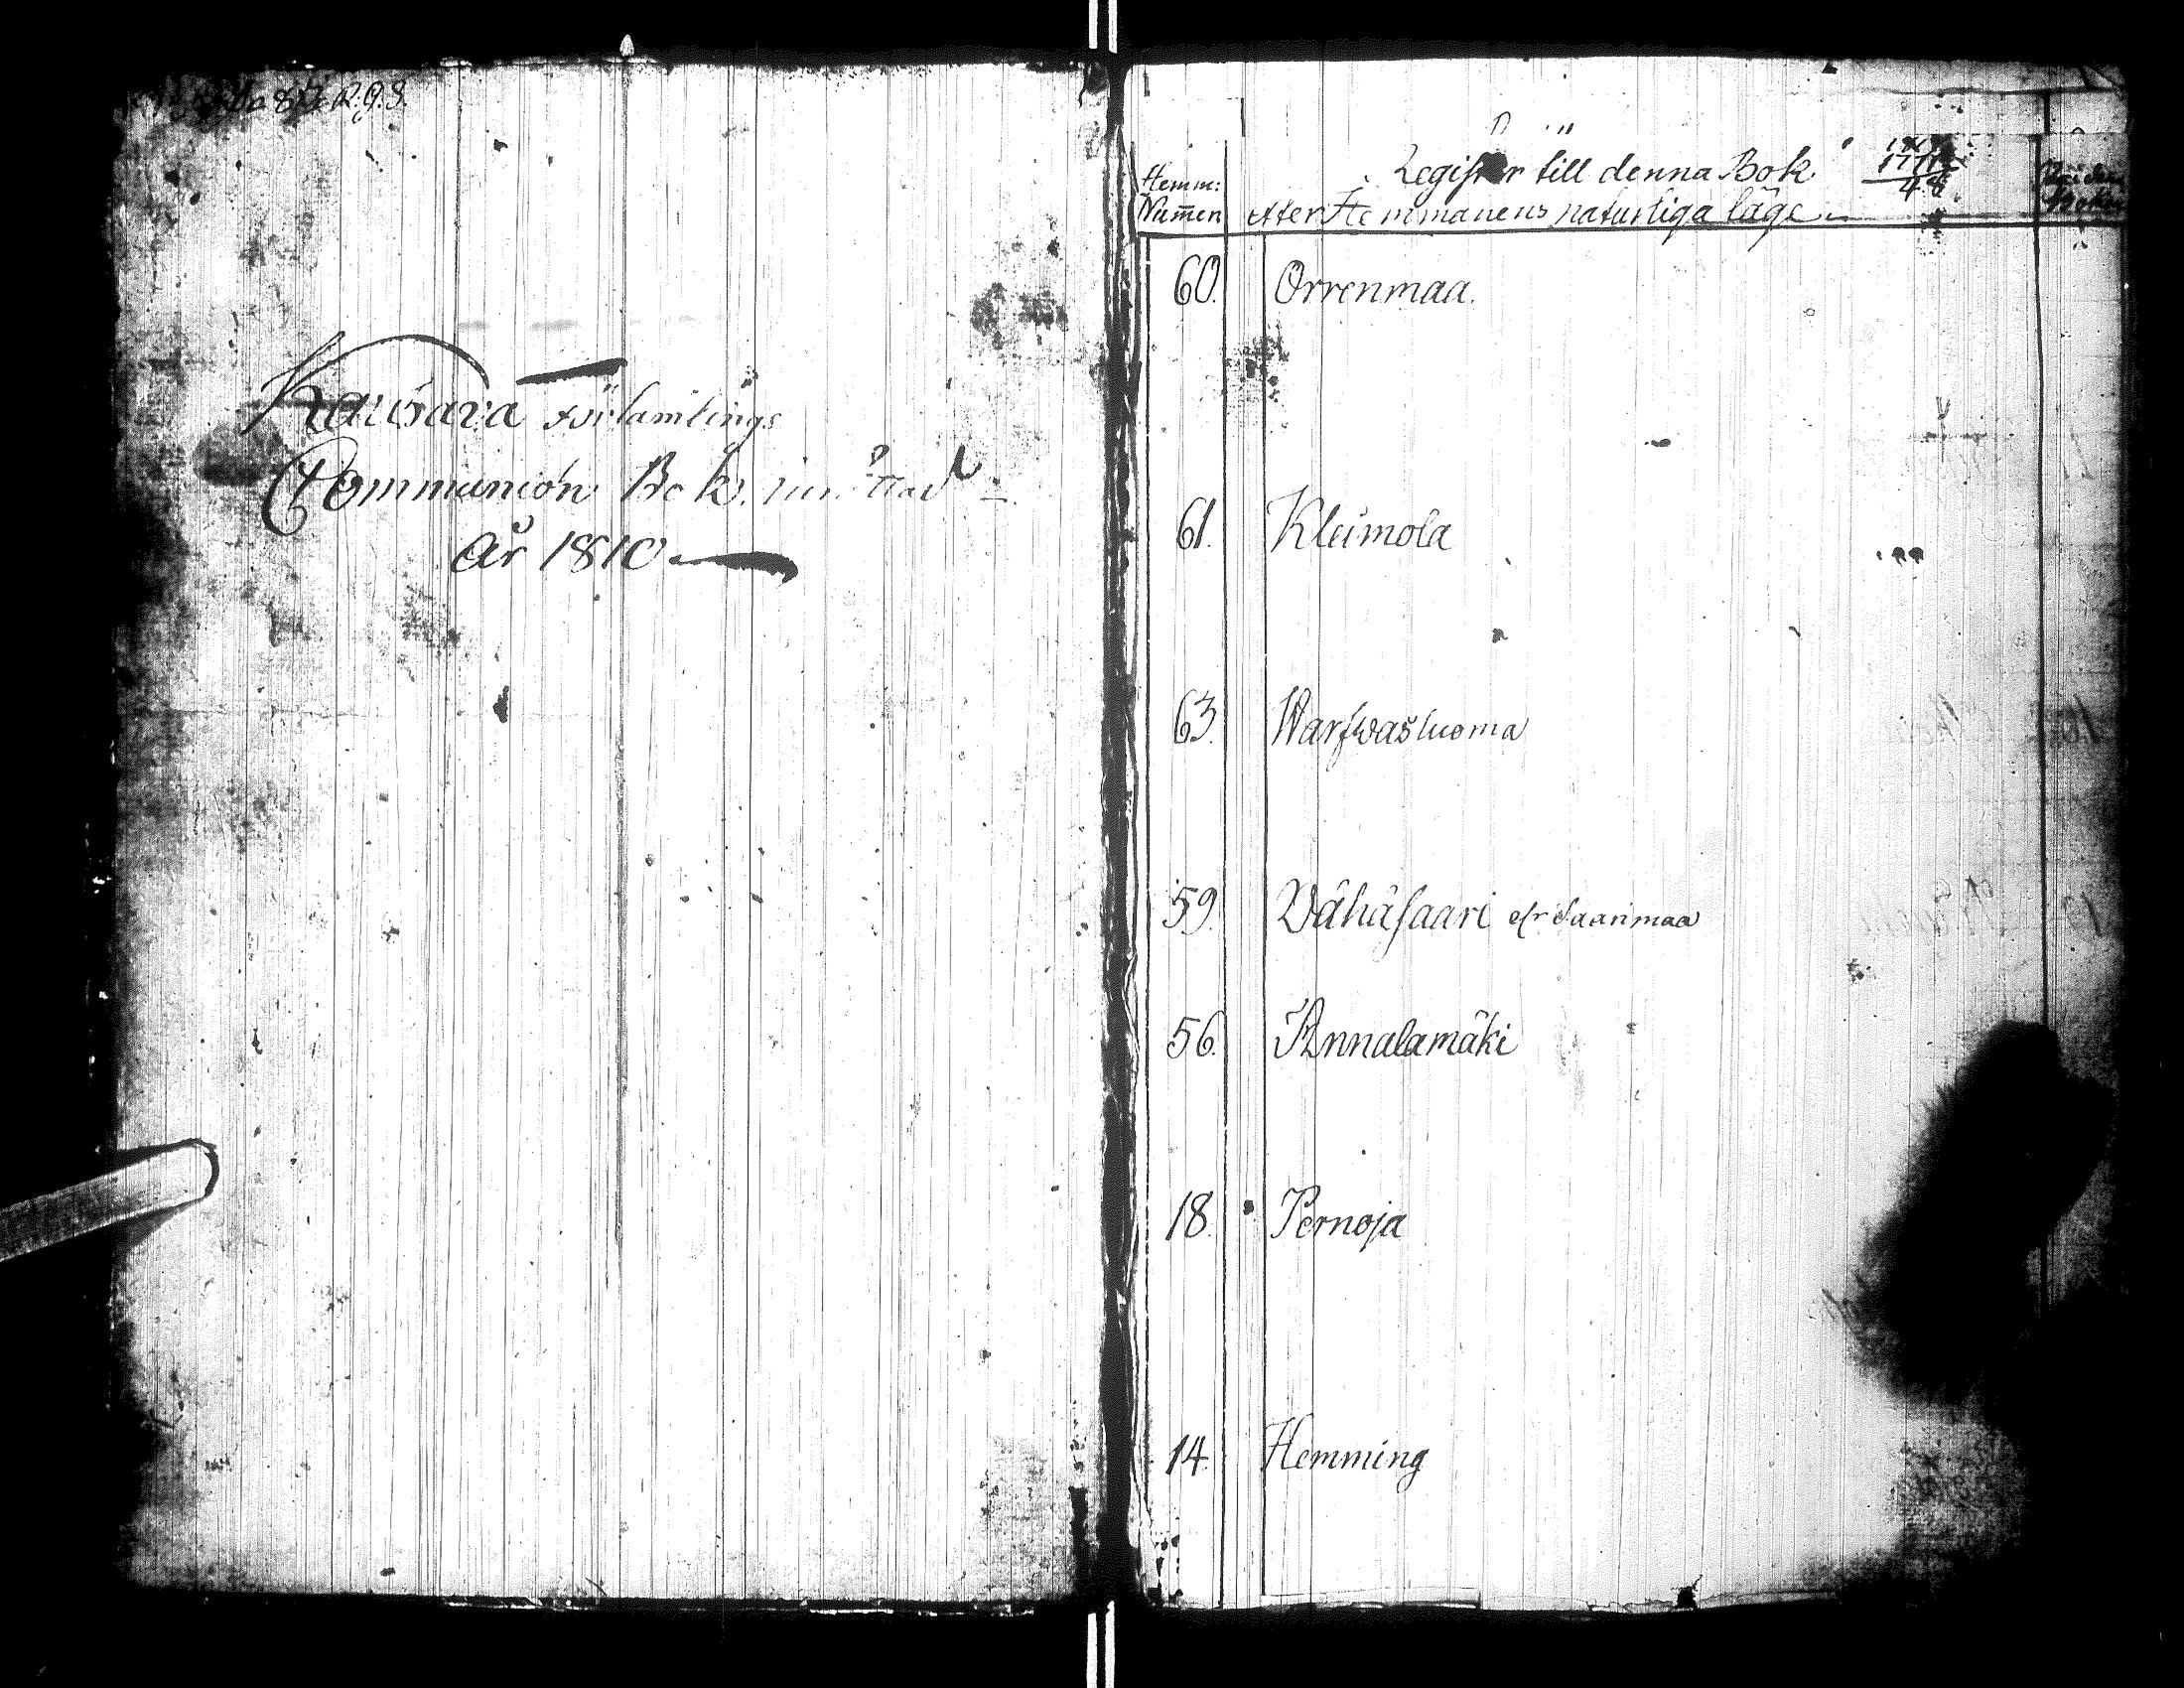 Kauhava Församlings
Communion Bok. inrättad
År 1810
Hemm:
Numren
Register till denna Bok
efter Hemmanens naturliga läge
48
60. Orrenmaa.
61. Kleimola
63. Warfwasluoma
59. Wähäsaari elr Saarimaa
56. Annalamäki
18. Pernoja
14. Hemming